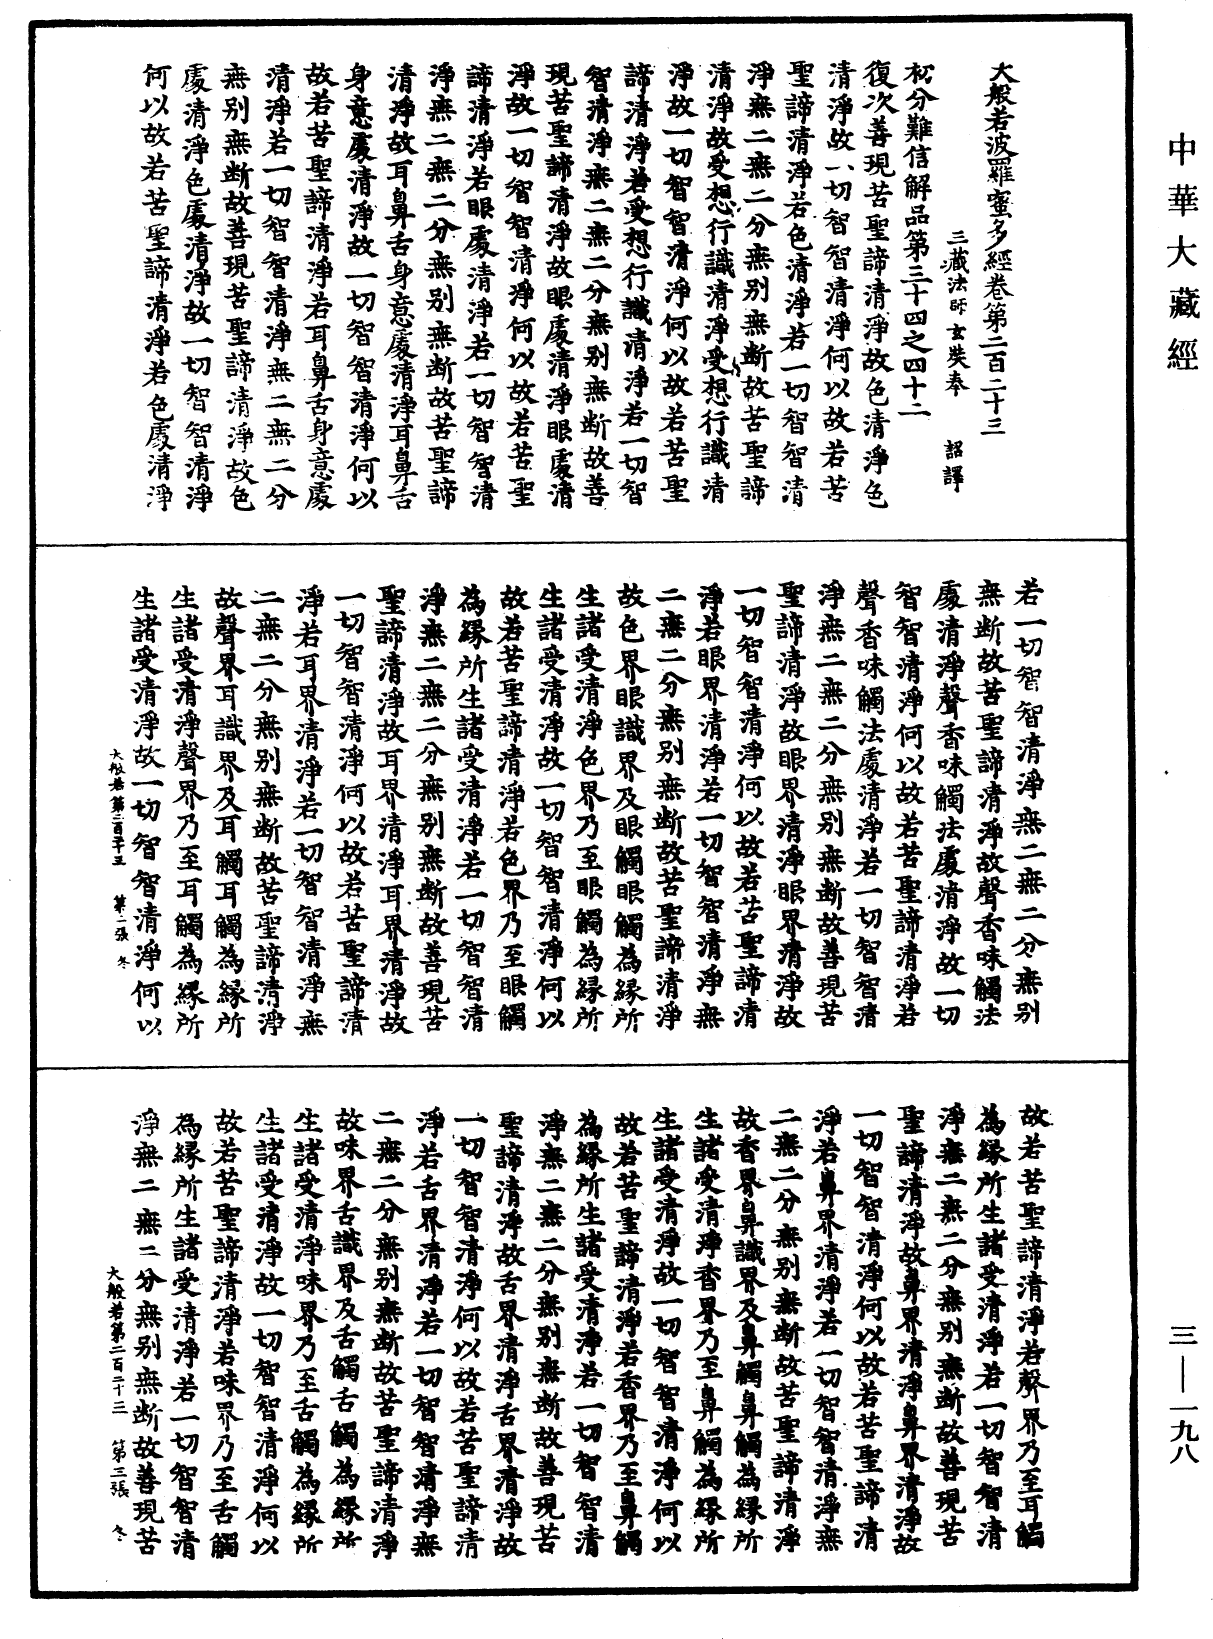 中華大藏經
三—一九八
大般若波羅蜜多經卷第二百二十三
三藏法師玄奘奉 詔譯
初分難信解品第三十四之四十二
復次善現苦聖諦清淨故色清淨色
清淨故一切智智清淨何以故若苦
聖諦清淨若色清淨若一切智智清
淨無二無二分無別無斷故苦聖諦
清淨故受想行識清淨受想行識清
淨故一切智智清淨何以故若苦聖
諦清淨若受想行識清淨若一切智
智清淨無二無二分無別無斷故善
現苦聖諦清淨故眼處清淨眼處清
淨故一切智智清淨何以故若苦聖
諦清淨若眼處清淨若一切智智清
淨無二無二分無別無斷故苦聖諦
清淨故耳鼻舌身意處清淨耳鼻舌
身意處清淨故一切智智清淨何以
故若苦聖諦清淨若耳鼻舌身意處
清淨若一切智智清淨無二無二分
無別無斷故善現苦聖諦清淨故色
處清淨色處清淨故一切智智清淨
何以故若苦聖諦清淨若色處清淨
若一切智智清淨無二無二分無別
無斷故苦聖諦清淨故聲香味觸法
處清淨聲香味觸法處清淨故一切
智智清淨何以故若苦聖諦清淨若
聲香味觸法處清淨若一切智智清
淨無二無二分無別無斷故善現苦
聖諦清淨故眼界清淨眼界清淨故
一切智智清淨何以故若苦聖諦清
淨若眼界清淨若一切智智清淨無
二無二分無別無斷故苦聖諦清淨
故色界眼識界及眼觸眼觸為緣所
生諸受清淨色界乃至眼觸為緣所
生諸受清淨故一切智智清淨何以
故若苦聖諦清淨若色界乃至眼觸
為緣所生諸受清淨若一切智智清
淨無二無二分無別無斷故善現苦
聖諦清淨故耳界清淨耳界清淨故
一切智智清淨何以故若苦聖諦清
淨若耳界清淨若一切智智清淨無
二無二分無別無斷故苦聖諦清淨
故聲界耳識界及耳觸耳觸為緣所
生諸受清淨聲界乃至耳觸為緣所
生諸受清淨故一切智智清淨何以
大般若第二百二十三 第二張 冬
故若苦聖諦清淨若聲界乃至耳觸
為緣所生諸受清淨若一切智智清
淨無二無二分無別無斷故善現苦
聖諦清淨故鼻界清淨鼻界清淨故
一切智智清淨何以故若苦聖諦清
淨若鼻界清淨若一切智智清淨無
二無二分無別無斷故苦聖諦清淨
故香界鼻識界及鼻觸鼻觸為緣所
生諸受清淨香界乃至鼻觸為緣所
生諸受清淨故一切智智清淨何以
故若苦聖諦清淨若香界乃至鼻觸
為緣所生諸受清淨若一切智智清
淨無二無二分無別無斷故善現苦
聖諦清淨故舌界清淨舌界清淨故
一切智智清淨何以故若苦聖諦清
淨若舌界清淨若一切智智清淨無
二無二分無別無斷故苦聖諦清淨
故味界舌識界及舌觸舌觸為緣所
生諸受清淨味界乃至舌觸為緣所
生諸受清淨故一切智智清淨何以
故若苦聖諦清淨若味界乃至舌觸
為緣所生諸受清淨若一切智智清
淨無二無二分無別無斷故善現苦
大般若第二百二十三 第三張 冬